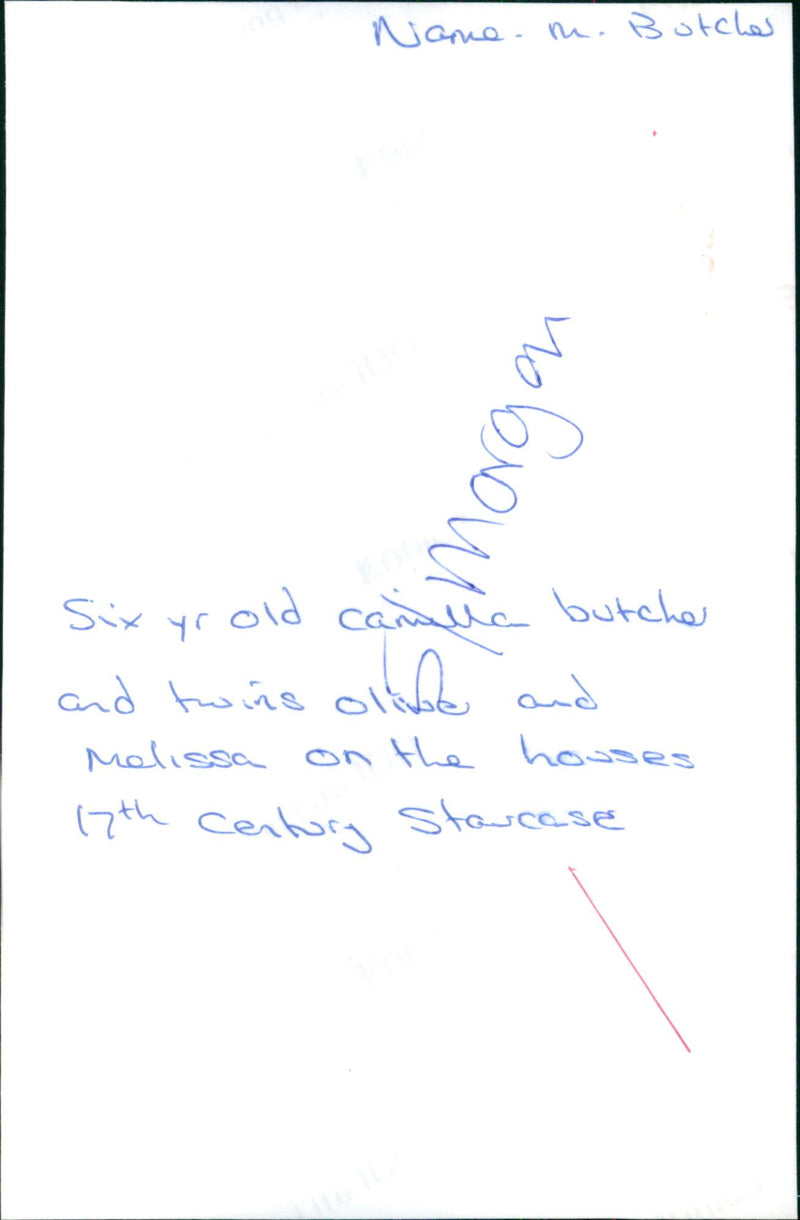 Name. M. Butcher
Morgan
Six yr old camilla butcher
and twins olive and
Melissa on the houses
17th Century Staircase